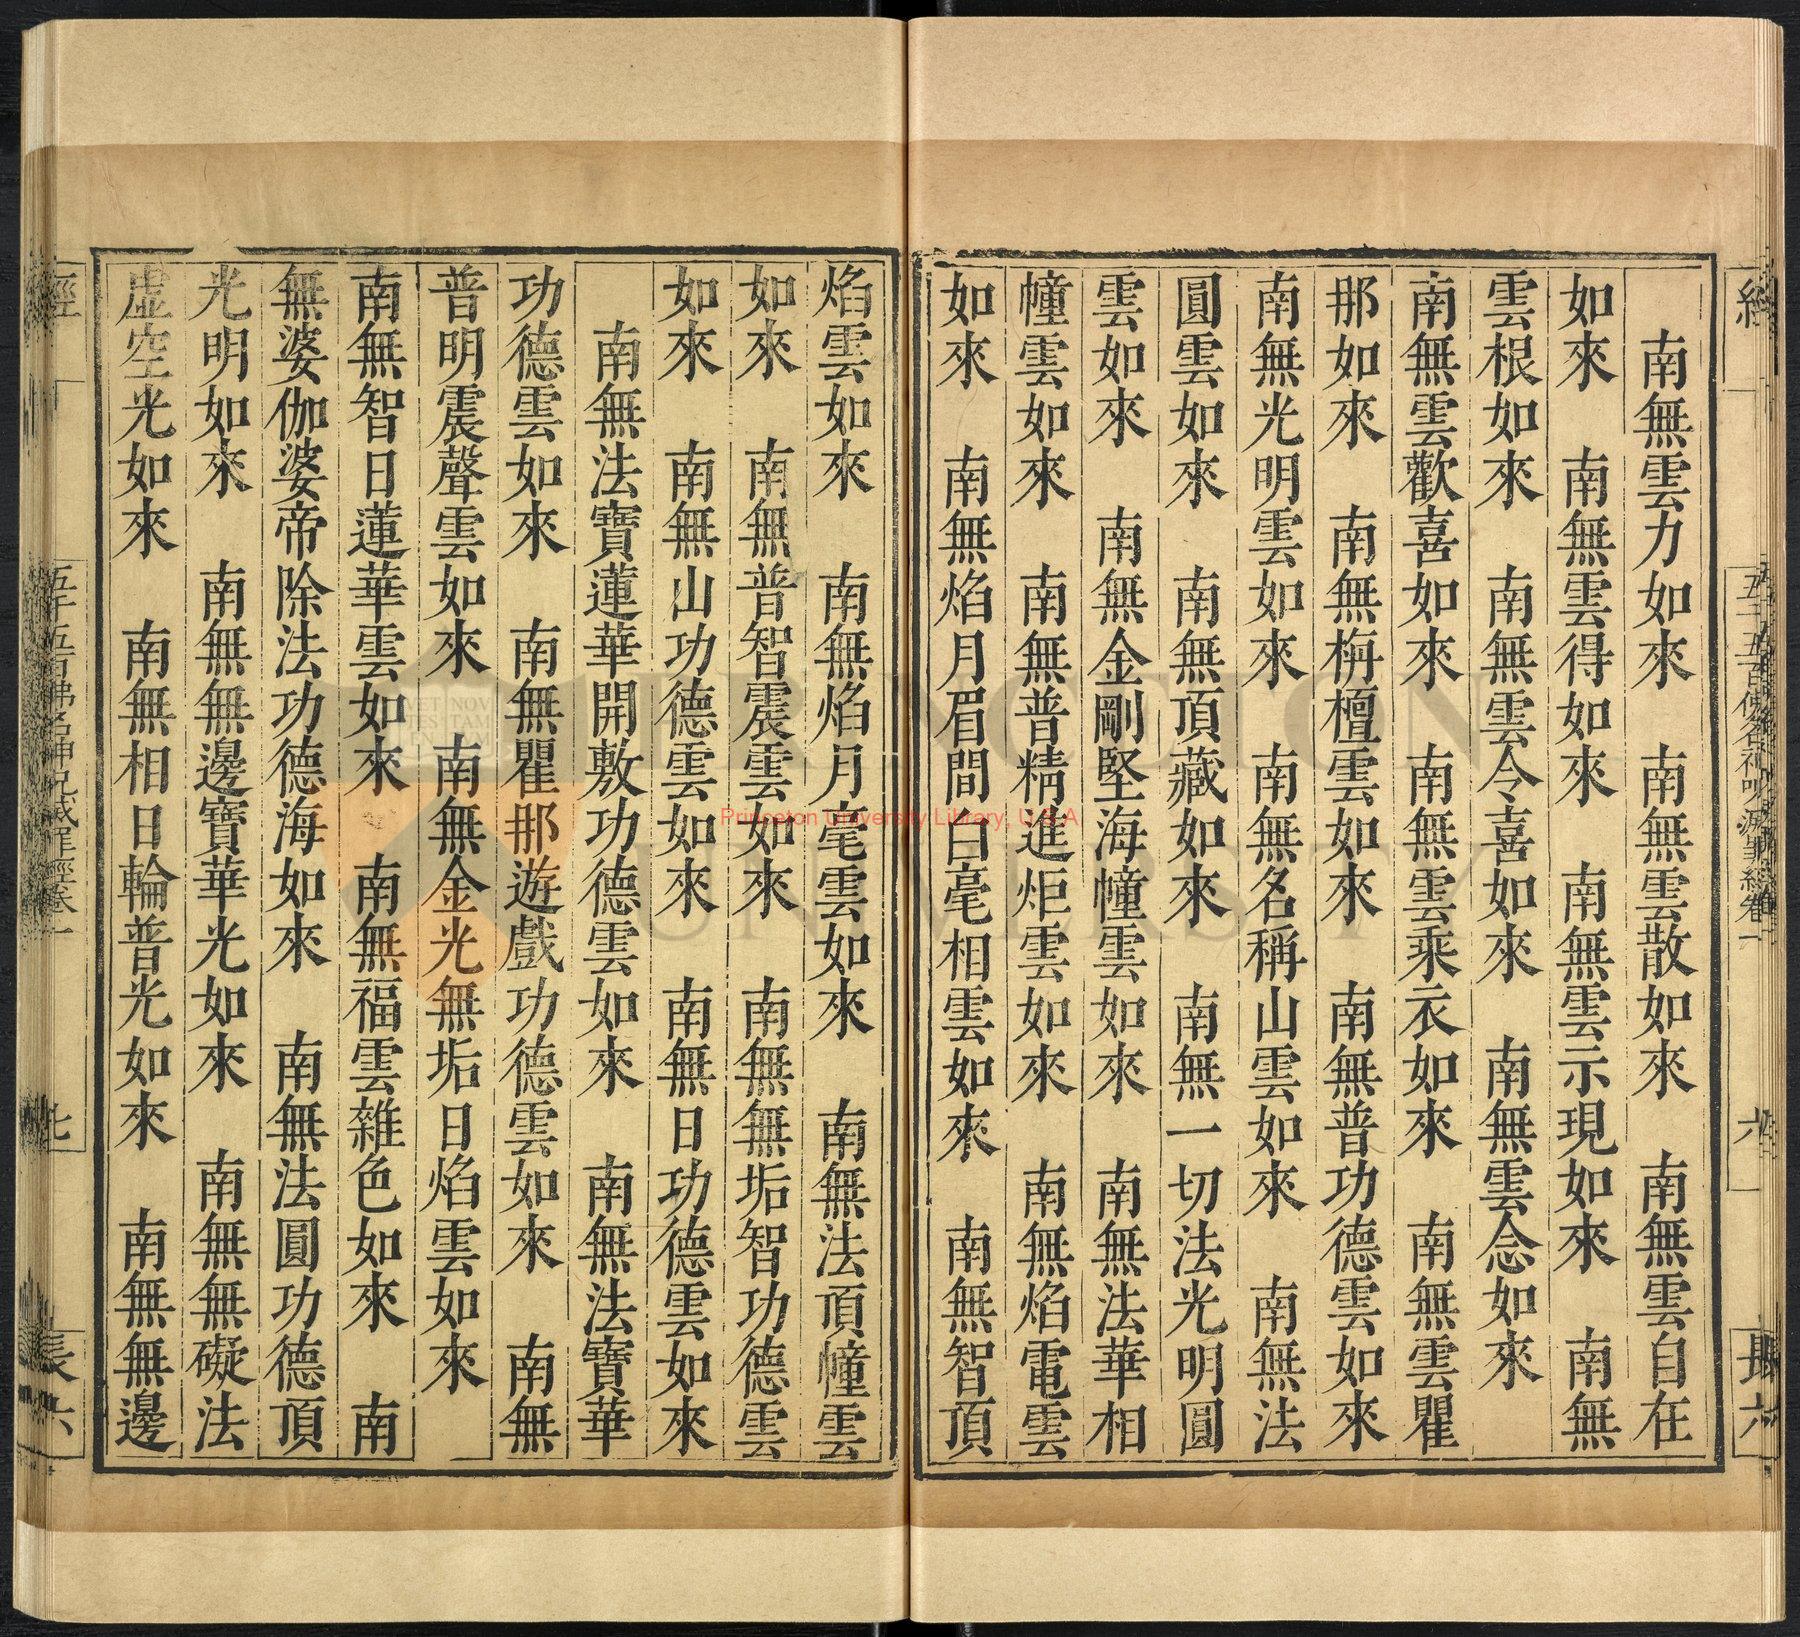 經
五千五百佛名神呪滅罪經卷一
六
長六
南無雲力如來　南無雲散如來　南無雲自在
如來　南無雲得如來　南無雲示現如來　南無
雲根如來　南無雲令喜如來　南無雲念如來
南無雲歡喜如來　南無雲乘衣如來　南無雲瞿
那如來　南無栴檀雲如來　南無普功德雲如來
南無光明雲如來　南無名稱山雲如來　南無法
圓雲如來　南無頂藏如來　南無一切法光明圓
雲如來　南無金剛堅海幢雲如來　南無法華相
幢雲如來　南無普精進炬雲如來　南無焰電雲
如來　南無焰月眉間白毫相雲如來　南無智頂
焰雲如來　南無焰月毫雲如來　南無法頂幢雲
如來　南無普智震雲如來　南無無垢智功德雲
如來　南無山功德雲如來　南無日功德雲如來
南無法寶蓮華開敷功德雲如來　南無法寶華
功德雲如來　南無瞿那遊戲功德雲如來　南無
普明震聲雲如來　南無金光無垢日焰雲如來
南無智日蓮華雲如來　南無福雲雜色如來　南
無婆伽婆帝除法功德海如來　南無法圓功德頂
光明如來　南無無邊寶華光如來　南無無礙法
虛空光如來　南無相日輪普光如來　南無無邊
經
五千五百佛名神呪滅罪經卷一
七
長六
Princeton University Library, U.S.A
PRINCETON
UNIVERSITY
VET NOV
TES TAM
EN TVM